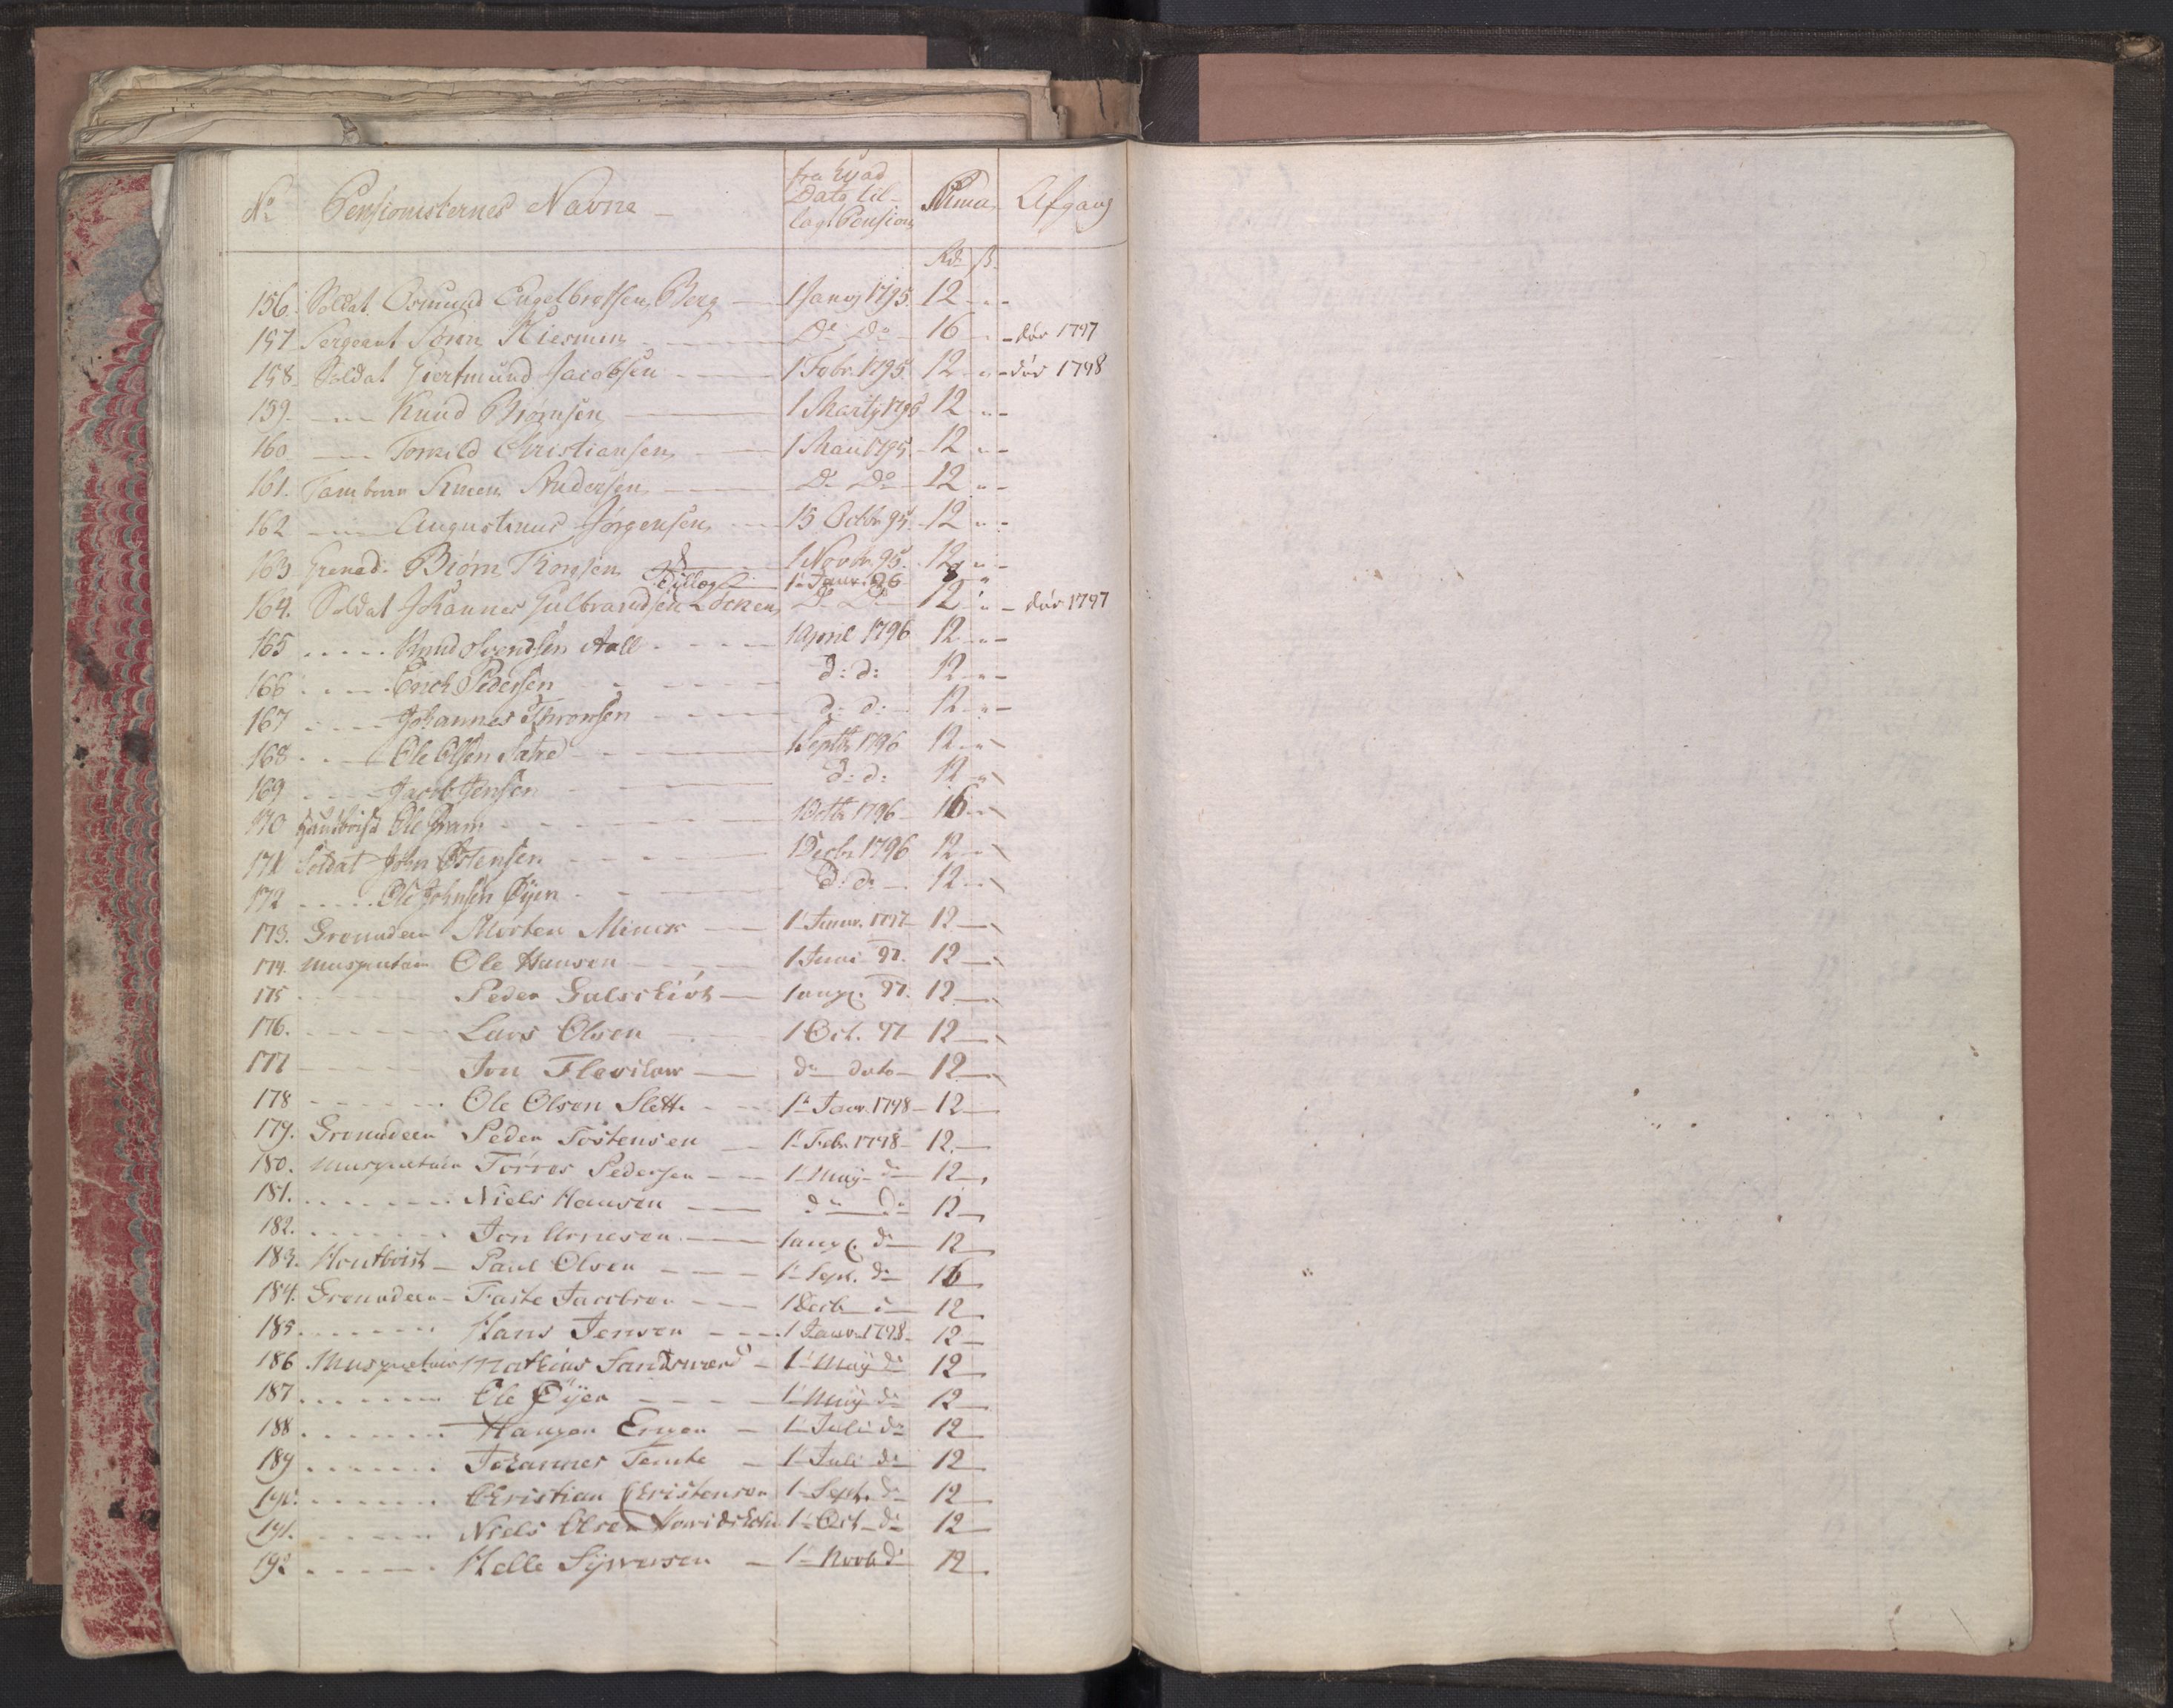 No Pensionisternes Navne fra hvad Dato tillagt Pension Suma Afgang
Rd ß
156. Soldat Osmund Engelbretsen Berg 1 Janvj 1795. 12 " -
157 Sergeant Søren Do Do 16 " - død 1797
158. Soldat Giertmund Jacobsen 1 Febr. 1795. 12 " - død 1798
159. — Knud Biørnsen 1 Martij 1795 12 " -
160. — Tomild Christiansen 1 Maii 1795. 12 " -
161. Tambour Simen Andersen Do Do 12 " -
162 — Augustinus Jørgensen 15 Octbr 95. 12 " -
163 Grenad. Biørn 1 Novbr. 95. 12 " -
Tillæg 1 Janv. 96 8 "
164. Soldat Johannes Gulbrandsen Løcken Do Do 12 " - død 1797
165 . . . . Knud Svendsen Aall 1 April 1796 12 " -
166 . . . . Erich Pedersen d: d: 12 " -
167 . . . . Johannes d: d: 12 " -
168 . . . Ole Olsen Sætre 1 Septbr 1796 12 "
169 . . . . Jacob Jensen d: d: 12 "
170 Hautboist Ole Fram 1 Octbr 1796 16
171 Soldat John Østensen 1 Decbr 1796 12
172 . . . . Ole Johnsen Øyen d: d: 12
173. Grenadeer Morten Minck 1 Janv. 1797 12
174. Musquetair Ole Hansen 1 Juni 97. 12
175 Peder 1 aug. 97. 12
176. Lars Olsen 1 Oct. 97 12
177 Jon do dato 12
178 Ole Olsen Slette 1 Janv. 1798 12
179. Grenadeer Peder Tostensen 1 Febr. 1798 12
180. Musquetair Torres Pedersen 1 Maij do 12
181. Niels Hansen do do 12
182. Jon Arnesen 1 aug. do 12
183. Houtboist Paul Olsen 1 Sept. do 16
184. Grenadeer Faste Jacobsen 1 Decbr do 12
185. Hans Jensen 1 Janv. 1798 12
186 Musquetair Mathias Sandsværd 1 Maij do 12
187 Ole Øijen 1 Maij do 12
188 1 Juli do 12
189 Johannes Temte 1 Juli do 12
190. Christian Christensen 1 Sept. do 12
191. Niels Olsen 1 Oct do 12
192 Helle Sywersen 1 Novb do 12